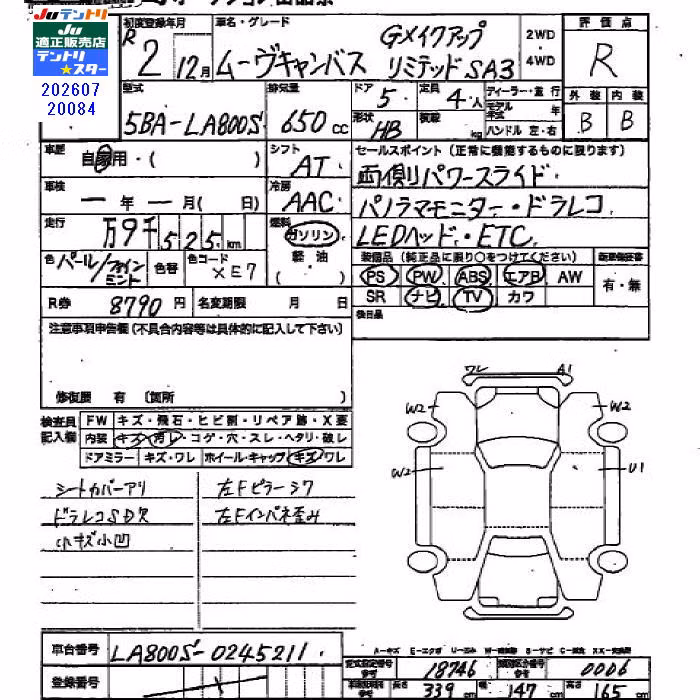 Juテントリ
Ju
適正販売店
テントリ
★スター
202607
20084
初度登録年月
R
2 12月
車名・グレード
ムーヴキャンバス
Gメイクアップ
リミテッド SA3
2WD
・
4WD
評価点
R
外装 内装
B B
型式
5BA-LA800S
排気量
650 cc
ドア 5
定員 4人
形状 HB
積載 kg
ディーラー・並行
モデル年式 年
ハンドル 左・右
車歴
自家用・( )
シフト
AT
車検
年 月( 日)
冷房
AAC
走行
万9千525 km
燃料
ガソリン
軽油
( )
色 パール/ファインミント
色替
色コード XE7
R券 8790 円
名変期限 月 日
セールスポイント(正常に機能するものに限ります)
両側パワースライド
パノラマモニター・ドラレコ
LEDヘッド・ETC
装備品(純正品に限り○をつけてください)
PS PW ABS エアB AW
SR ナビ TV カワ
新車保証書
有・無
後日品
注意事項申告欄(不具合内容等は具体的に記入して下さい)
修復歴 有 〔箇所 〕
検査員
記入欄
FW キズ・飛石・ヒビ割・リペア跡・X要
内装 キズ・汚レ・コゲ・穴・スレ・ヘタリ・破レ
ドアミラー キズ・ワレ ホイール・キャップ キズ・ワレ
シートカバーアリ
ドラレコSD欠
小キズ小凹
左Fピラーシワ
左Fインパネ歪み
ワレ A1
W2 W2
W2 U1
車台番号 LA800S-0245211
登録番号
A-キズ E-エクボ U-凹み W-補修跡 S-サビ C-腐食 XX-交換跡
型式指定番号 18746
類別区分番号 0006
長さ 339 cm 幅 147 cm 高さ 165 cm